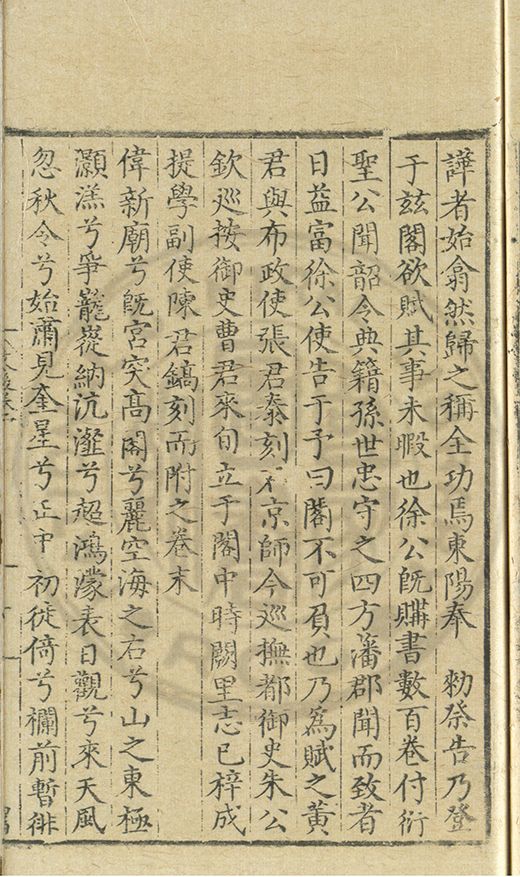 譁者始翕然歸之稱全功焉東陽奉　勑祭告乃登
于兹閣欲賦其事未暇也徐公旣購書數百卷付衍
聖公聞韶令典籍孫世忠守之四方潘郡聞而致者
日益富徐公使告于予曰閣不可負也乃為賦之黄
君與布政使張君泰刻 京師今巡撫都御史朱公
欽巡按御史曹君來旬立于閣中時闕里志已梓成
提學副使陳君鎬刻而附之卷末
偉新廟兮旣宫突髙閣兮麗空海之右兮山之東極
灝溔兮爭巃嵸納沆瀣兮超鴻濛表日觀兮來天風
忽秋令兮始肅見奎星兮正中　初徙倚兮欄前暫徘